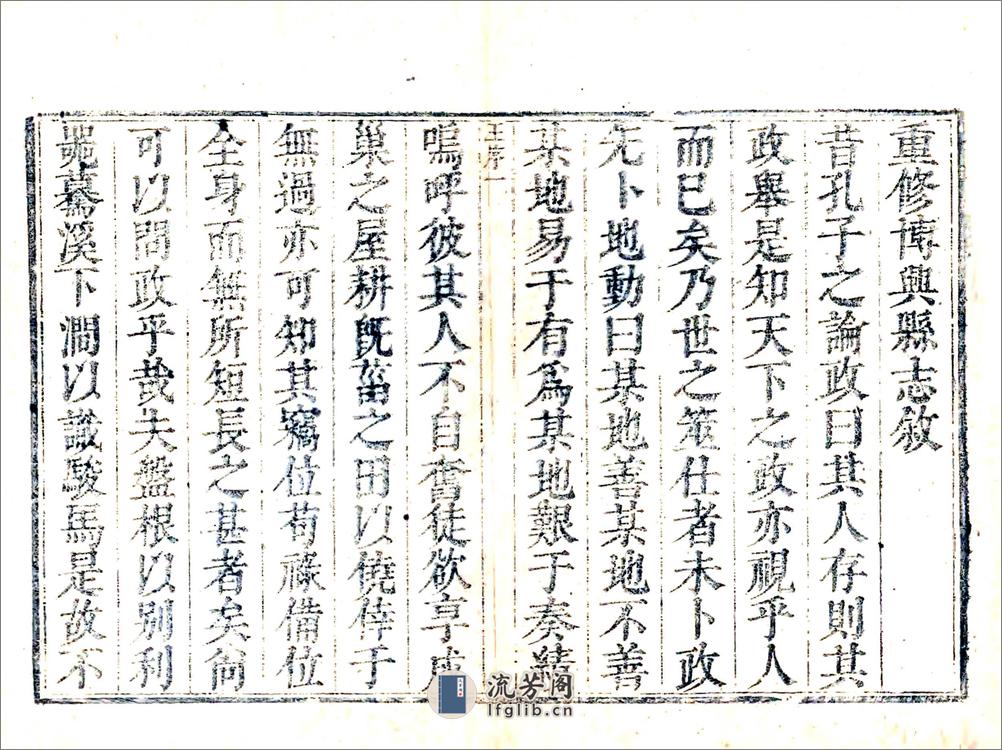 重修博興縣志敘
昔孔子之論政曰其人存則其
政舉是知天下之政亦視乎人
而已矣乃世之筮仕者未卜政
先卜地動曰某地善某地不善
某地易于有為某地艱于奏績
王序一
嗚呼彼其人不自奮徒欲享成
巢之屋耕既菑之田以僥倖于
無過亦可知其竊位苟祿備位
全身而無所短長之甚者矣尚
可以問政乎哉夫盤根以別利
器驀溪下澗以識駿馬是故不
流芳阁
lfglib.cn